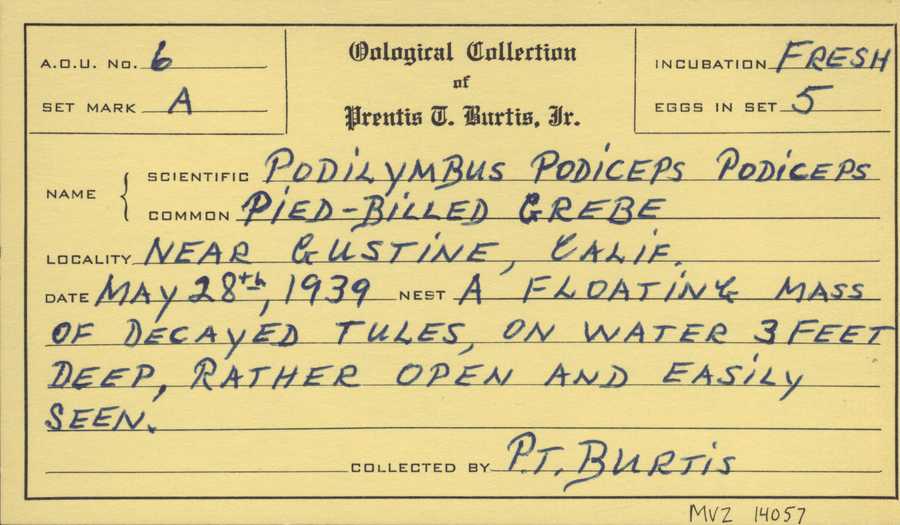 A.O.U. No. 6
SET MARK A
Oological Collection
of
Prentis T. Burtis, Jr.
INCUBATION FRESH
EGGS IN SET 5
NAME
SCIENTIFIC PODILYMBUS PODICEPS PODICEPS
COMMON PIED-BILLED GREBE
LOCALITY NEAR GUSTINE, CALIF.
DATE MAY 28th, 1939 NEST A FLOATING MASS
OF DECAYED TULES, ON WATER 3 FEET
DEEP, RATHER OPEN AND EASILY
SEEN.
COLLECTED BY P.T. BURTIS
MVZ 14057